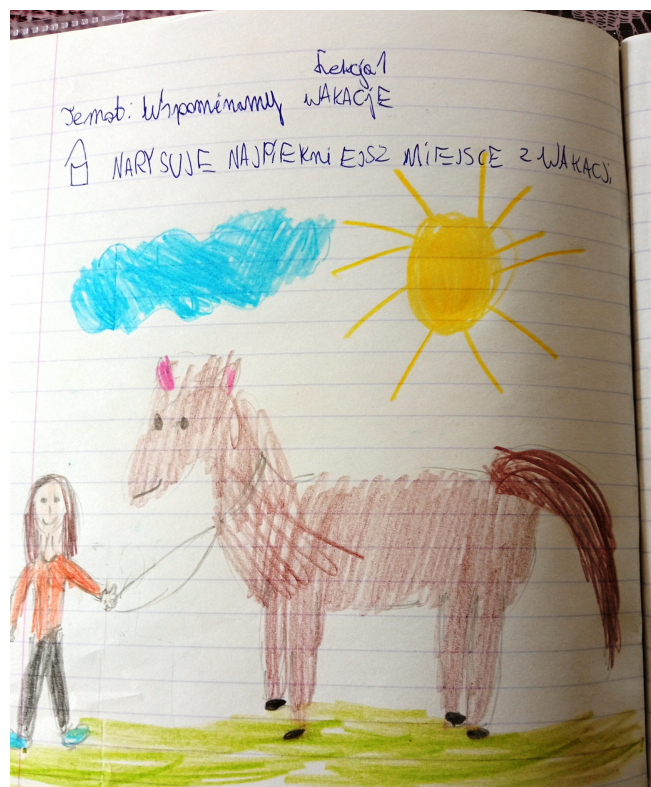 Lekcja 1
Temat: Wspominamy WAKACJE
NARYSUJE NAJPIEKNIEJSZ MIEJSCE Z WAKACJI